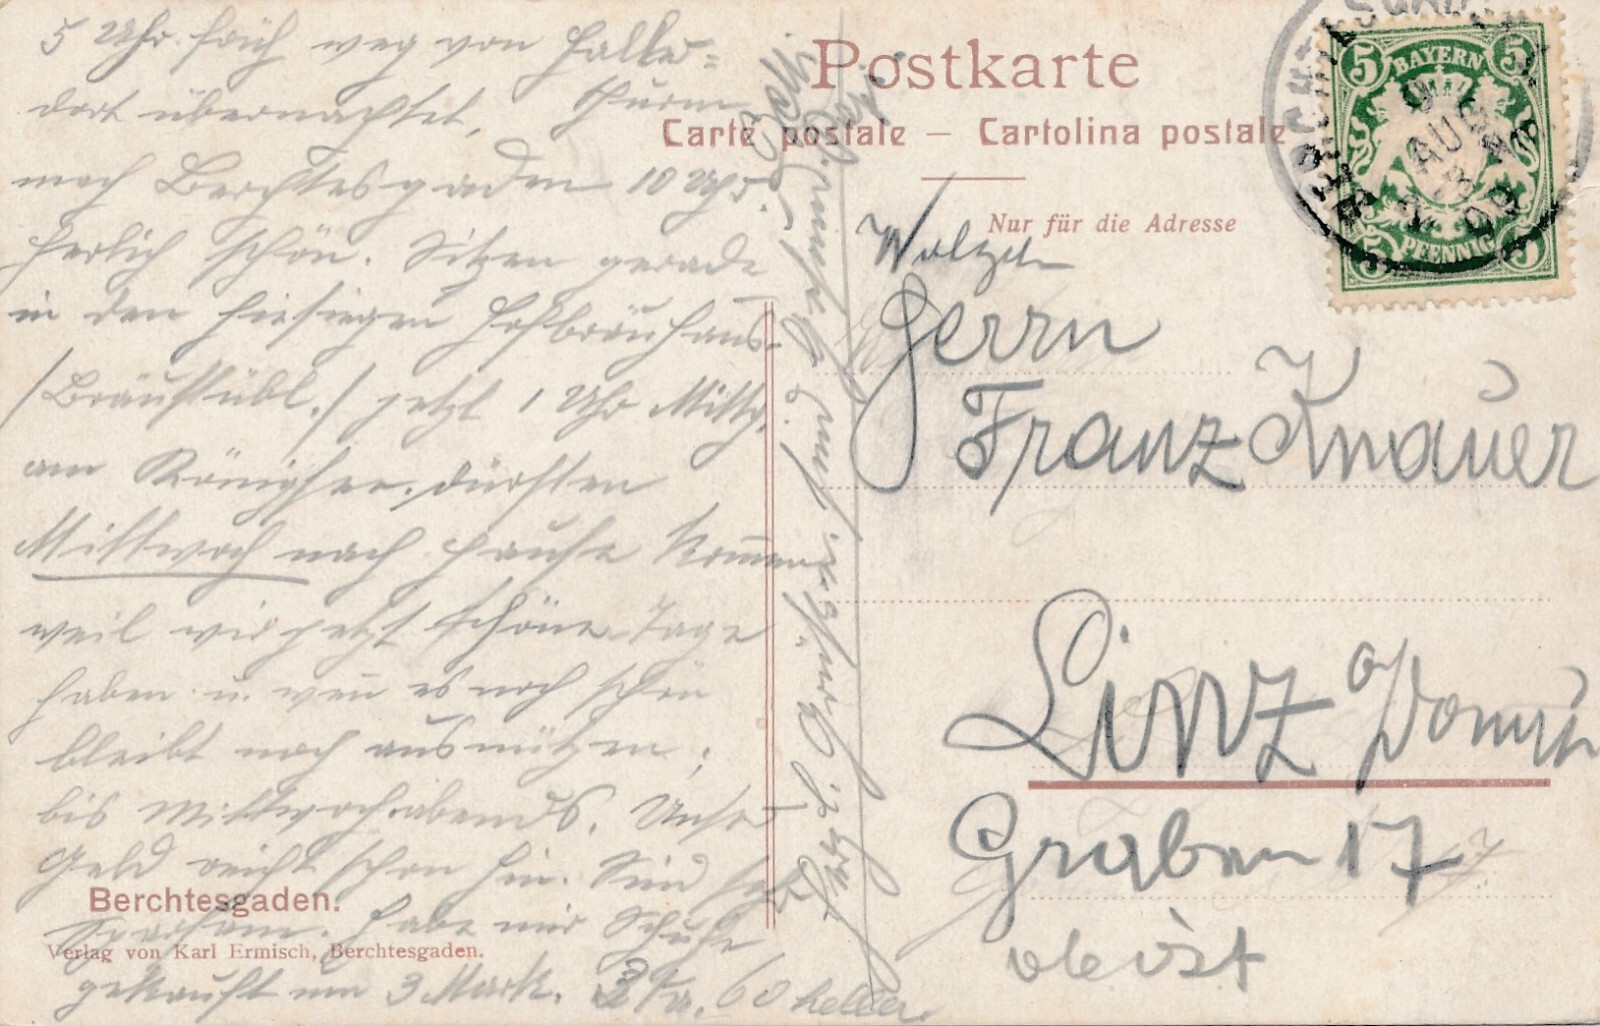 5 Uhr früh weg von Hallein
dort übernachtet.
nach Berchtesgaden 10 Uhr.
herlich schön. Sitzen gerade
in den hiesigen Hofbräuhaus-
/Bräustübl./ jetzt 1 Uhr Mittg.
am Königsee. dürften
Mittwoch nach Hause kommen
weil wir jetzt schöne Tage
haben u. wen es noch schön
bleibt noch ausnützen,
bis Mittwoch abends. Unser
Geld reicht schon hin. Sind sehr
Sparsam. habe mir Schuhe
gekauft um 3 Mark. 60 heller.
Postkarte
Carte postale — Cartolina postale
Nur für die Adresse
BAYERN
5 5
5 5
PFENNIG
AUG
Herrn
Franz Knauer
Linz a/Donau
Graben 17
Berchtesgaden.
Verlag von Karl Ermisch, Berchtesgaden.